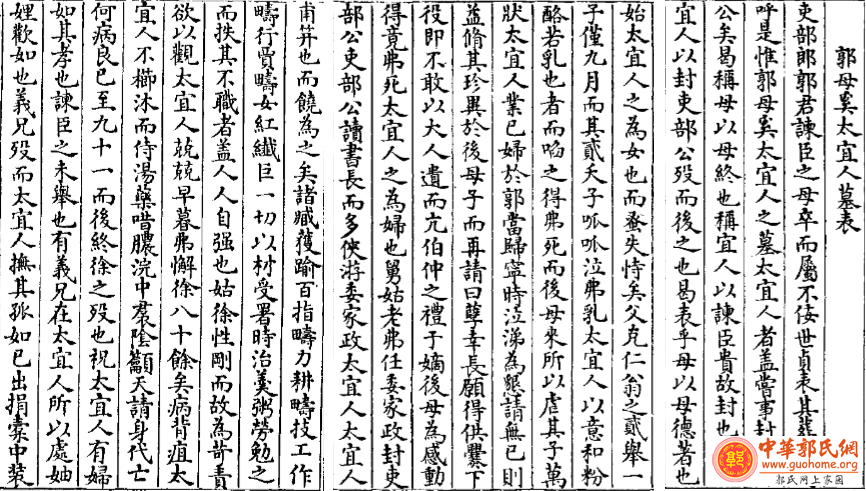 郭母奚太宜人墓表
吏部郎郭君諫臣之母卒而屬不佞世貞表其
呼是惟郭母奚太宜人之墓太宜人者盖嘗事封
公矣曷稱母以母終也稱宜人以諫臣貴故封也
宜人以封吏部公殁而後之也曷表乎母以母德著也
始太宜人之為女也而蚤失恃矣父克仁翁之貳舉一
子僅九月而其貳夭子呱呱泣弗乳太宜人以意和粉
酪若乳也者而啗之得弗死而後母來所以虐其子萬
狀太宜人業已婦於郭當歸寧時泣涕為懇請無已則
益脩其珍異於後母子而再請曰孽幸長願得供爨下
役即不敢以大人遺而亢伯仲之禮于嫡後母為感動
得竟弗死太宜人之為婦也舅姑老弗任委家政封吏
部公吏部公讀書長而多俠游委家政太宜人太宜人
甫笄也而饒為之矣諸臧獲踰百指疇力耕疇技工作
疇行賈疇女紅纎巨一切以材受署時治羹粥勞勉之
而抶其不職者盖人人自强也姑徐性剛而故為苛責
欲以觀太宜人兢兢早暮弗懈徐八十餘矣病背疽太
宜人不櫛沐而侍湯藥唶膿浣中羣陰籲天請身代亡
何病良已至九十一而後終徐之殁也祝太宜人有婦
如其孝也諫臣之未舉也有義兄在太宜人所以處妯
娌歡如也義兄殁而太宜人撫其孤如已出捐橐中装
中華郭氏網
www.guohome.org
郭氏网上家园